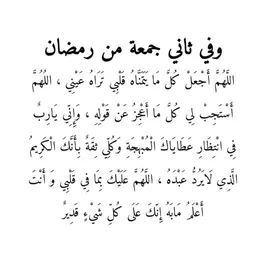 وفي ثاني جمعة من رمضان
اللَّهُمَّ أَجْعَلْ كُلَّ مَا يَتَمَنَّاهُ قَلْبِي تَرَاهُ عَيْنِي ، اللهُمَّ
أَسْتَجِبْ لِي كُلَّ مَا أَعْجَزُ عَنْ قَوْلِهِ ، وَإِنِّي يَارِبٌ
فِي انْتِظَارِ عَطَايَاكَ الْمُبْهِجَةِ وَكُلِّي ثِقَةٌ بِأَنَّكَ الْكَرِيمُ
الَّذِي لَايَرُدُّ عَبْدَهُ ، اللَّهُمَّ عَلَيْكَ بِمَا فِي قَلْبِي وَ أَنْتَ
أَعْلَمُ مَابَهُ إِنَّكَ عَلَى كُلِّ شَيْءٍ قَدِيرٌ